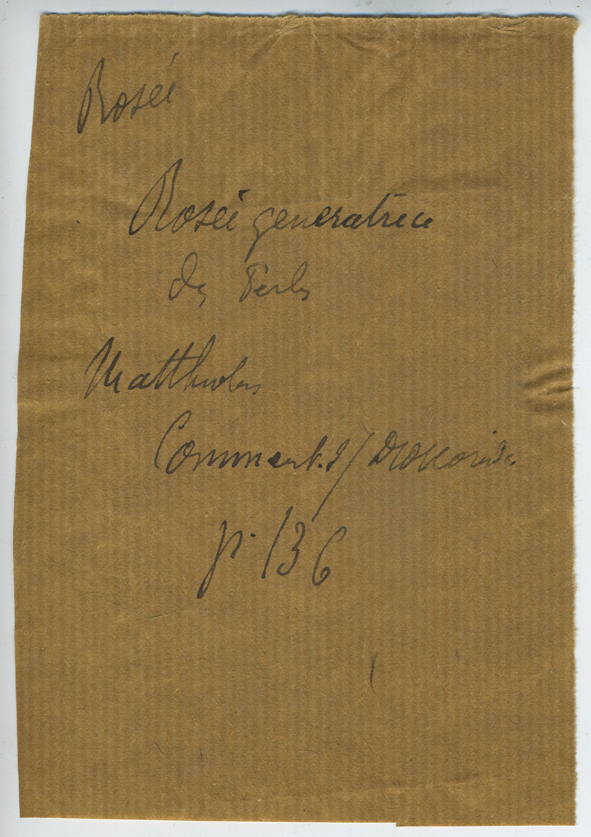 Rosée
Rosée generatrice
des Perles
Matthiolus
Comment. s/ Dioscoride
p. 136